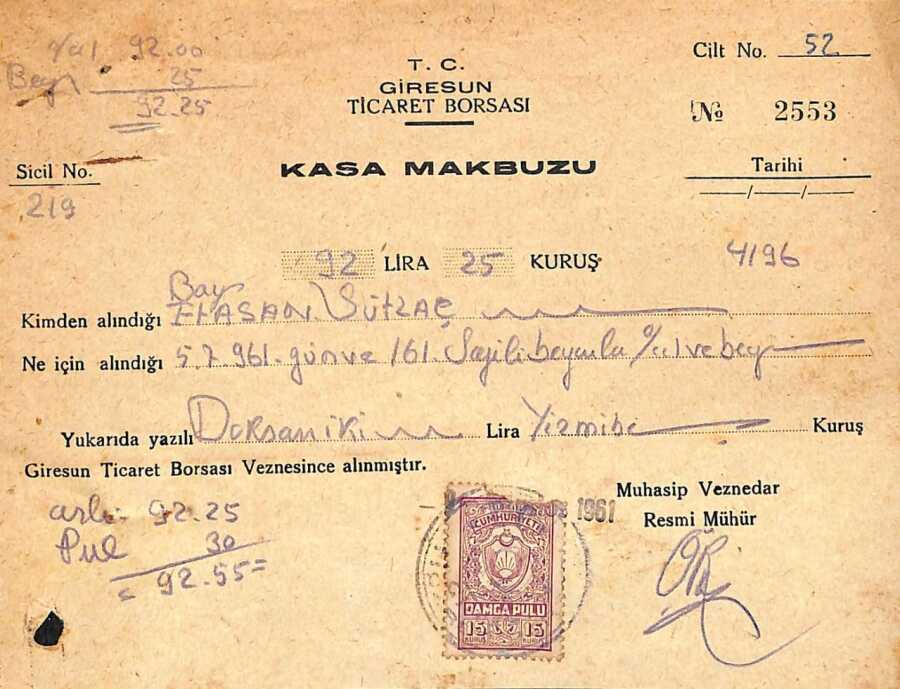 92.00
Bey 25
92.25
T. C.
GİRESUN
TİCARET BORSASI
Cilt No. 52
№ 2553
Sicil No.
219
KASA MAKBUZU
Tarihi
—/—/—
92 LİRA 25 KURUŞ
4196
Bay
Kimden alındığı HASAN SÜTLAÇ
Ne için alındığı 5.7.961. gün ve 161. Sayili beyanla ve bey
Yukarıda yazılı Doksan iki Lira Yirmibe Kuruş
Giresun Ticaret Borsası Veznesince alınmıştır.
Muhasip Veznedar
Resmi Mühür
92.25
Pul 30
92.55=
1961
CUMHURİYETİ
DAMGA PULU
15 15
KURUŞ KURUŞ